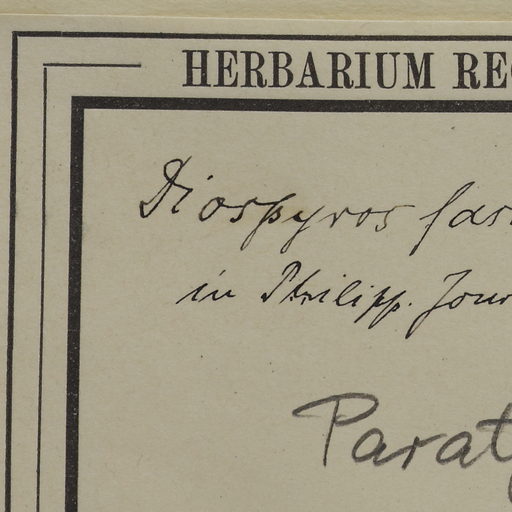 HERBARIUM REG
Diospyros fas
in Philipp. Jour
Parat